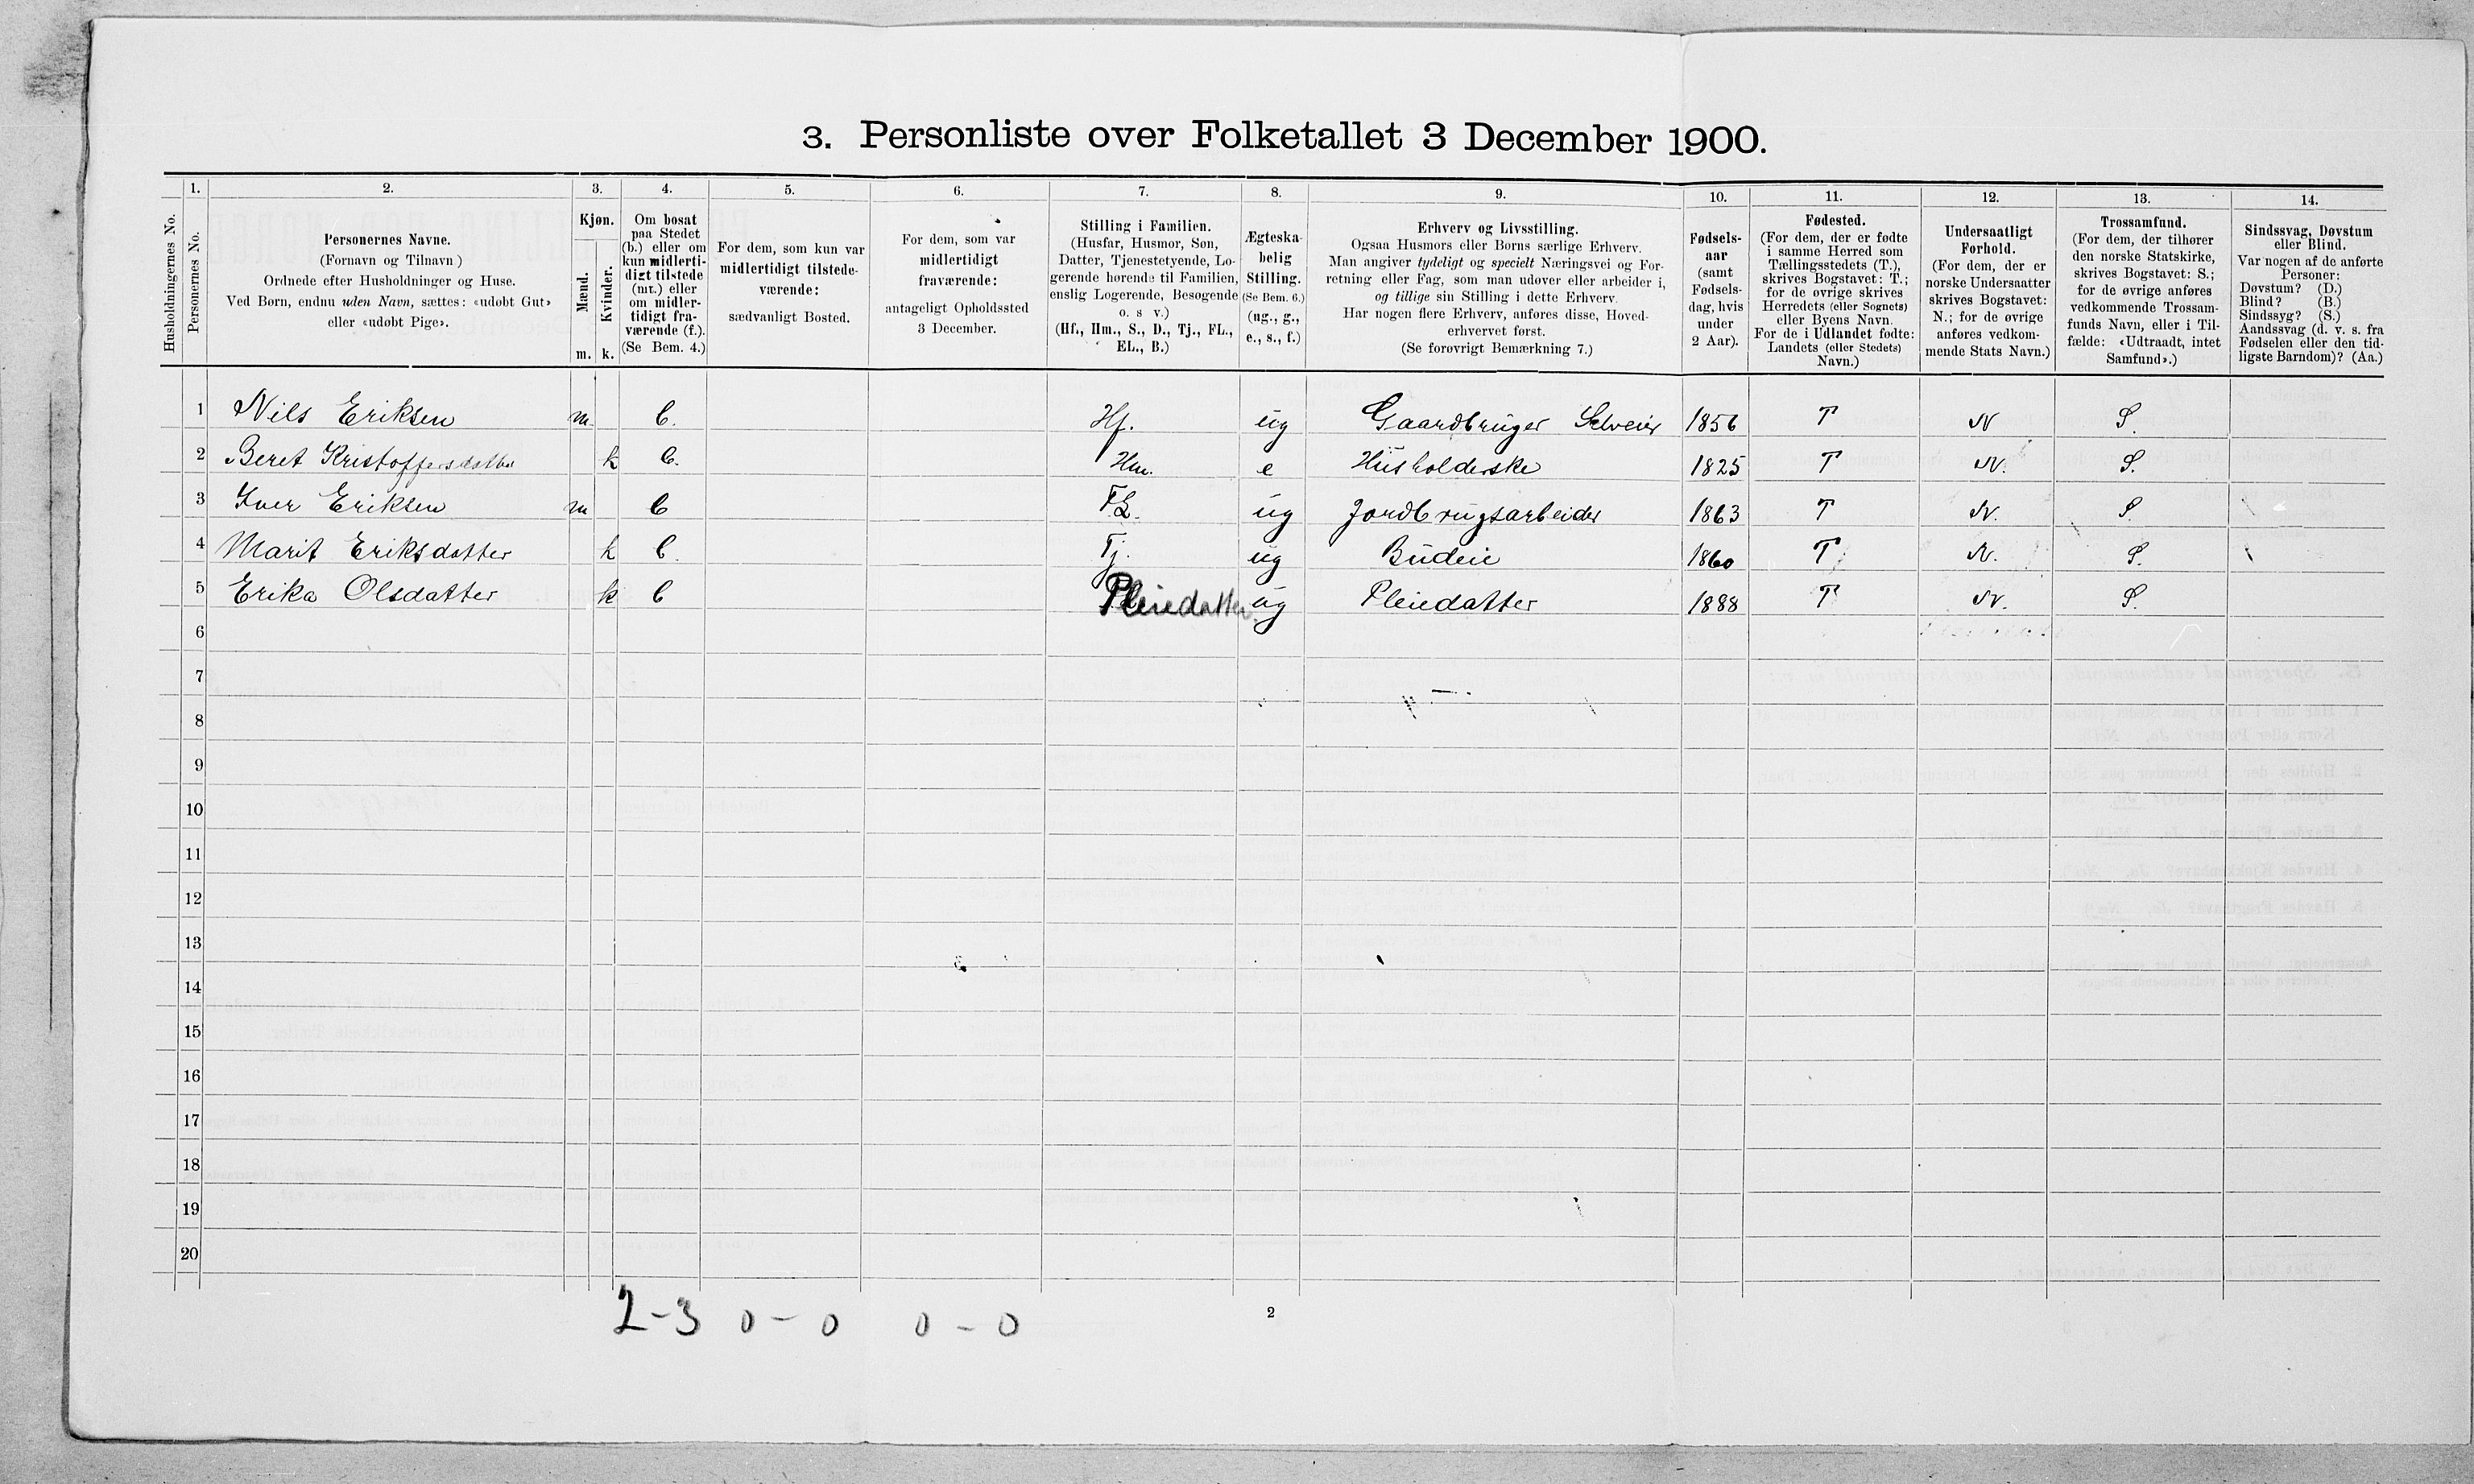 3. Personliste over Folketallet 3 December 1900.
Husholdningernes No.
1.
Personernes No.
2.
Personernes Navne.
(Fornavn og Tilnavn)
Ordnede efter Husholdninger og Huse.
Ved Børn, endnu uden Navn, sættes: «udøbt Gut»
eller «udøbt Pige».
3.
Kjøn.
Mænd.
m.
Kvinder.
k.
4.
Om bosat
paa Stedet
(b.) eller om
kun midlerti-
digt tilstede
(mt.) eller
om midler-
tidigt fra-
værende (f.).
(Se Bem. 4.)
5.
For dem, som kun var
midlertidigt tilstede-
værende:
sædvanligt Bosted.
6.
For dem, som var
midlertidigt
fraværende:
antageligt Opholdssted
3 December.
7.
Stilling i Familien.
(Husfar, Husmor, Søn,
Datter, Tjenestetyende, Lo-
gerende hørende til Familien,
enslig Logerende, Besøgende
o. s v.)
(Hf., Hm., S., D., Tj., FL.,
EL., B.)
8.
Ægteska-
belig
Stilling.
(Se Bem. 6.)
(ug., g.,
e., s., f.)
9.
Erhverv og Livsstilling.
Ogsaa Husmors eller Børns særlige Erhverv.
Man angiver tydeligt og specielt Næringsvei og For-
retning eller Fag, som man udøver eller arbeider i,
og tillige sin Stilling i dette Erhverv.
Har nogen flere Erhverv, anføres disse, Hoved-
erhvervet først.
(Se forøvrigt Bemærkning 7.)
10.
Fødsels-
aar
(samt
Fødsels-
dag, hvis
under
2 Aar).
11.
Fødested.
(For dem, der er fødte
i samme Herred som
Tællingsstedets (T.),
skrives Bogstavet: T.;
for de øvrige skrives
Herredets (eller Sognets)
eller Byens Navn.
For de i Udlandet fødte:
Landets (eller Stedets)
Navn.)
12.
Undersaatligt
Forhold.
(For dem, der er
norske Undersaatter
skrives Bogstavet:
N.; for de øvrige
anføres vedkom-
mende Stats Navn.)
13.
Trossamfund.
(For dem, der tilhører
den norske Statskirke,
skrives Bogstavet: S.;
for de øvrige anføres
vedkommende Trossam-
funds Navn, eller i Til-
fælde: «Udtraadt, intet
Samfund».)
14.
Sindssvag, Døvstum
eller Blind.
Var nogen af de anførte
Personer:
Døvstum? (D.)
Blind? (B.)
Sindssyg? (S.)
Aandssvag (d. v. s. fra
Fødselen eller den tid-
ligste Barndom)? (Aa.)
1 Nils Eriksen m. b. Hf. ug Gaardbruger Selveier 1856 T N S.
2 Beret Kristoffersdatter k b. Hm. e Husholderske 1825 T N. S.
3 Iver Eriksen m b FL. ug Jordbrugsarbeider 1863 T N. S.
4 Marit Eriksdatter k b. Tj. ug Budeie 1860 T N. S.
5 Erika Olsdatter k b Pleiedatter ug Pleiedatter 1888 T N. S.
6
7
8
9
10
11
12
13
14
15
16
17
18
19
20
2-3 0-0 0-0
2